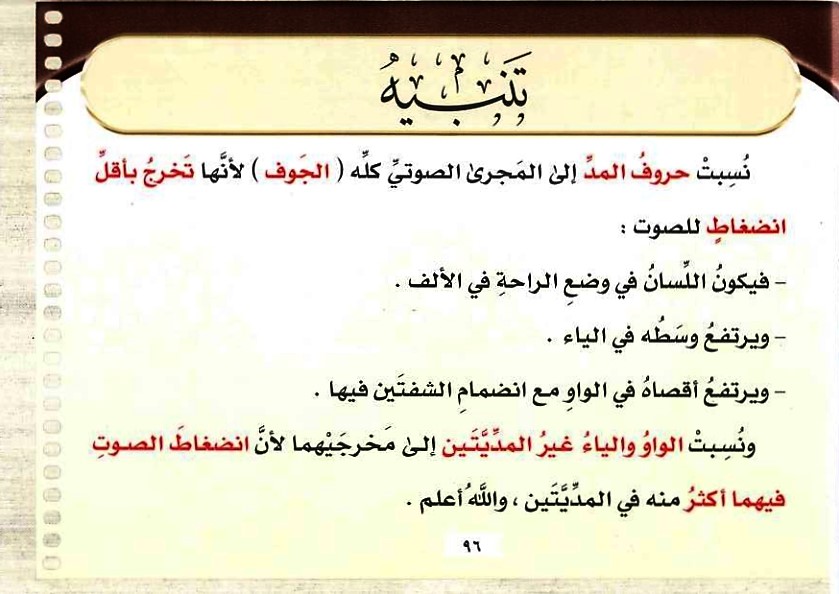 تَنبِيهٌ
نُسِبتْ حروفُ المدِّ إلىٰ المَجرىٰ الصوتيِّ كلِّه ( الجَوف ) لأنَّها تَخرجُ بأقلِّ
انضغاطٍ للصوت :
– فيكونُ اللِّسانُ في وضعِ الراحةِ في الألف .
– ويرتفعُ وسَطُه في الياء .
– ويرتفعُ أقصاهُ في الواوِ مع انضمامِ الشفتَين فيها .
ونُسِبتْ الواوُ والياءُ غيرُ المديَّتَين إلىٰ مَخرجَيْهما لأنَّ انضغاطَ الصوتِ
فيهما أكثرُ منه في المدِّيَّتَين ، واللَّهُ أعلم .
٩٦